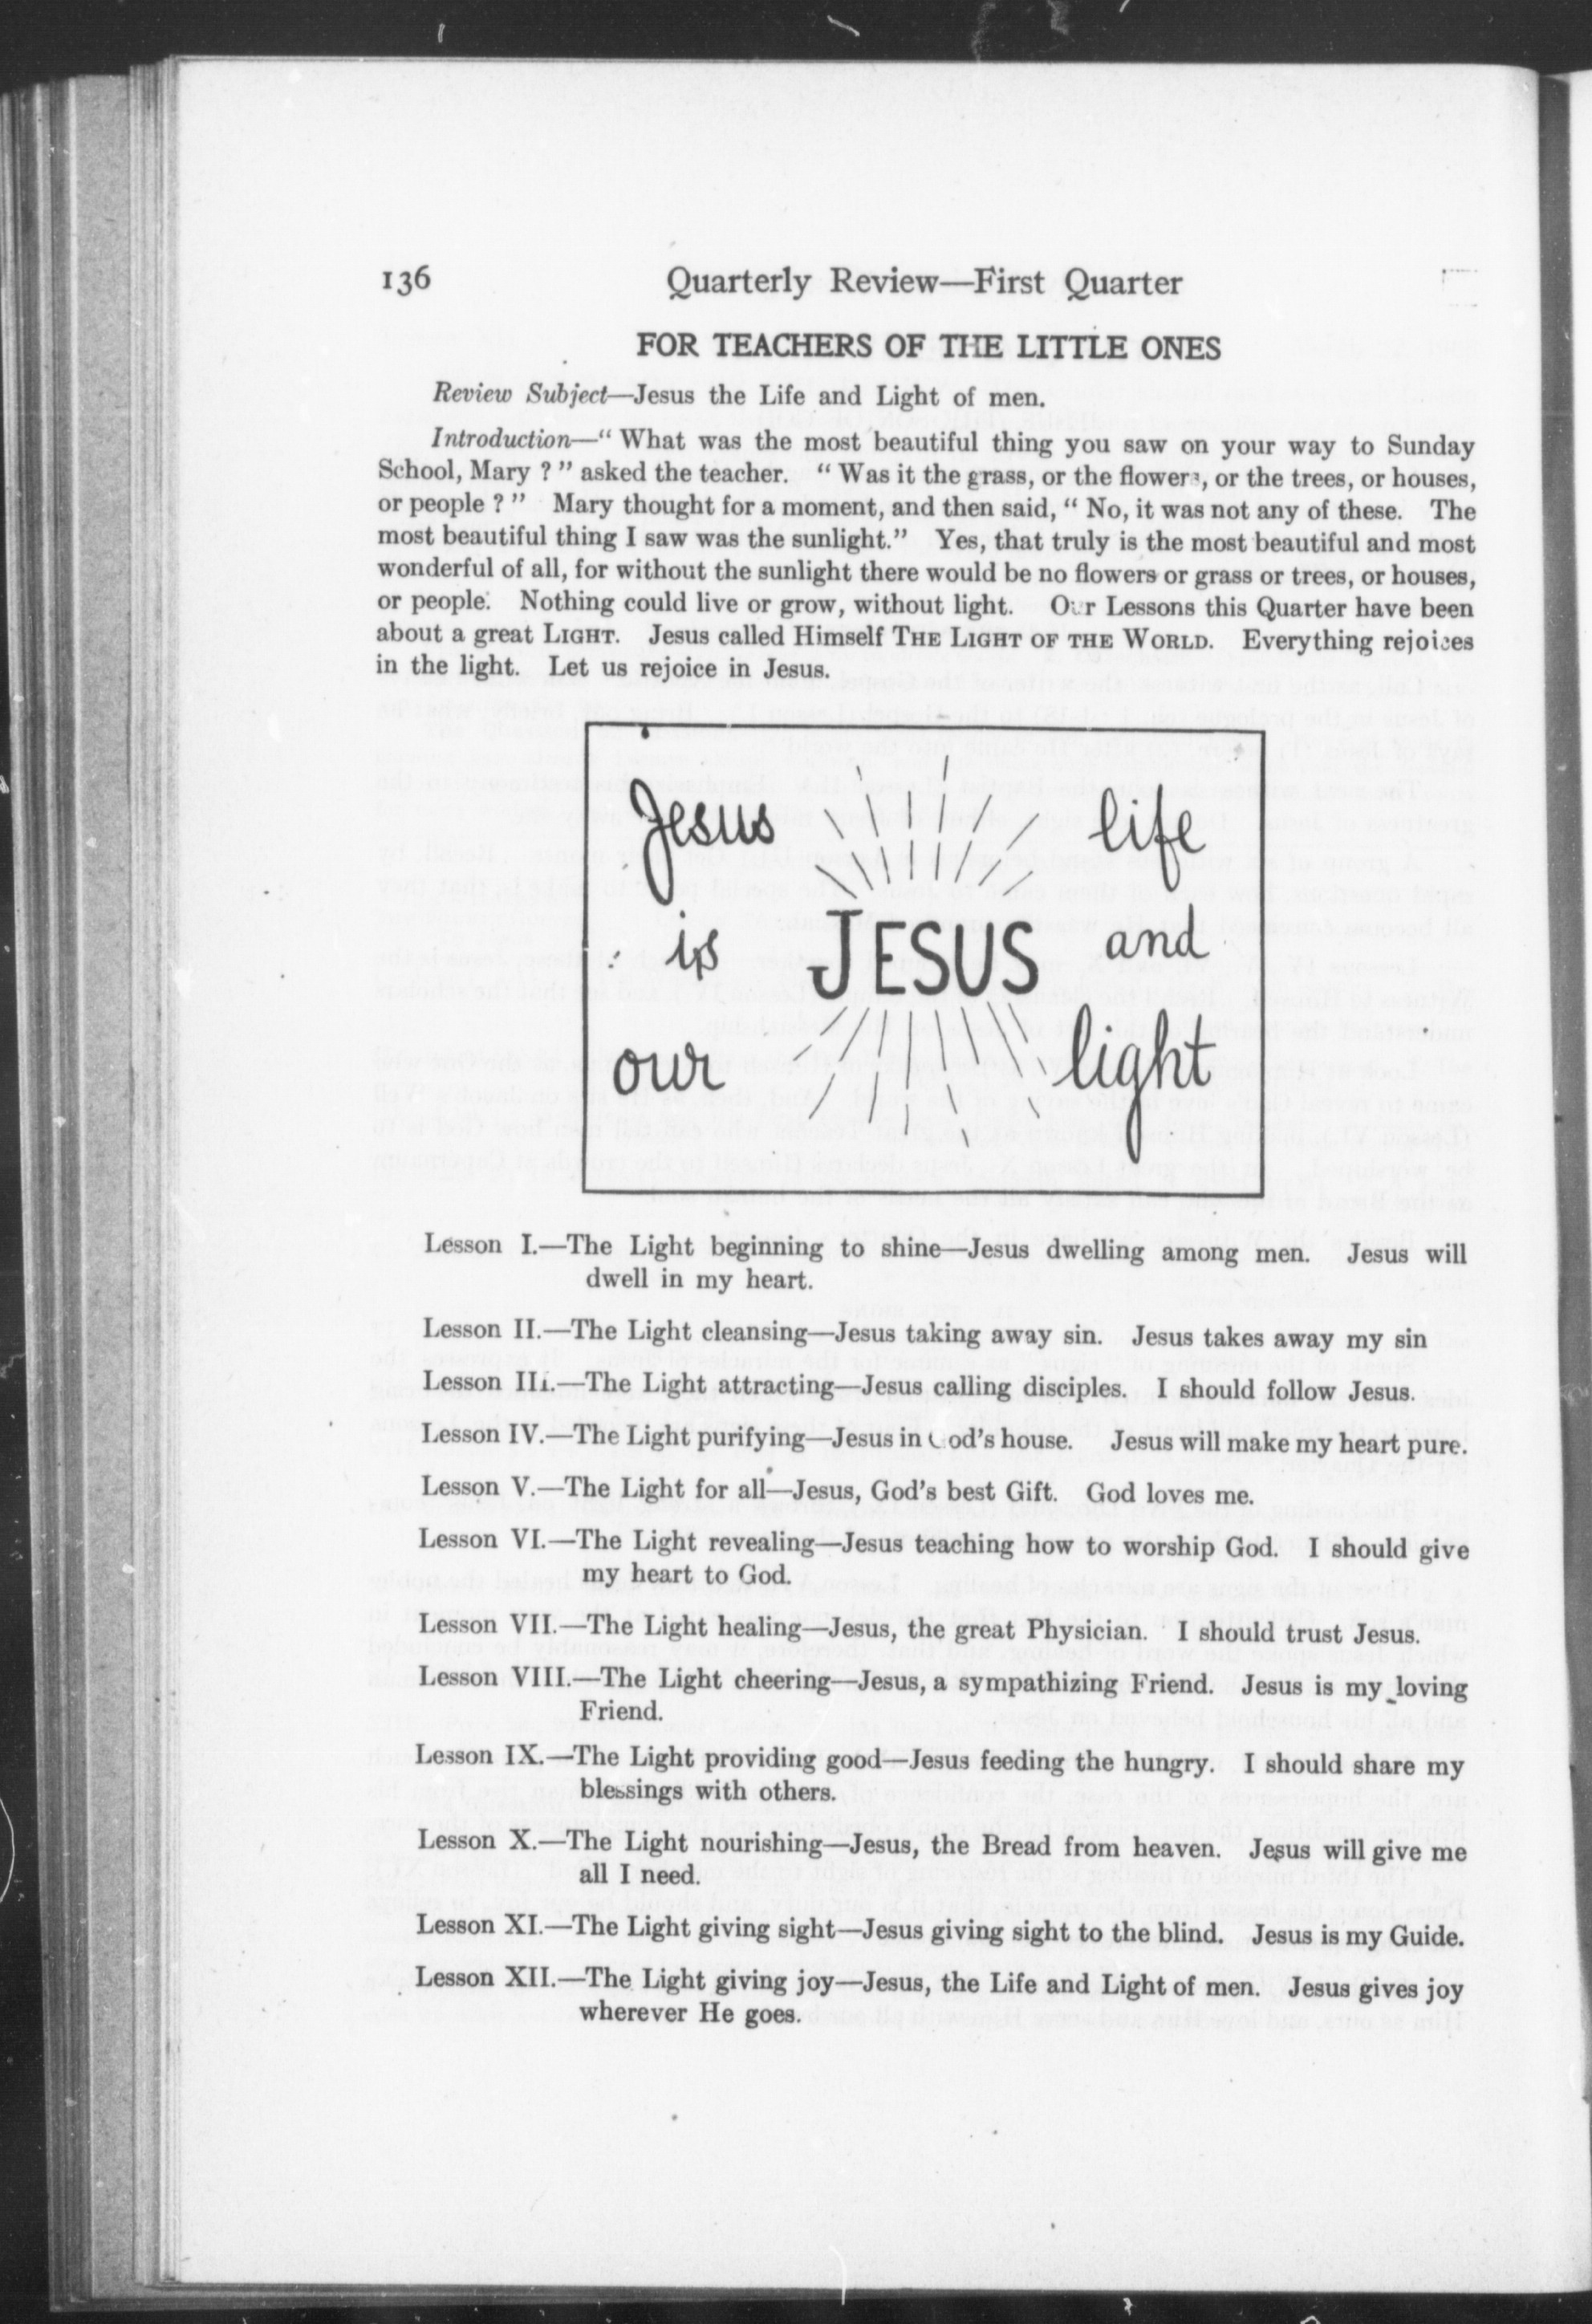 136
Quarterly Review—First Quarter
FOR TEACHERS OF THE LITTLE ONES
Review Subject—Jesus the Life and Light of men.
Introduction—“ What was the most beautiful thing you saw on your way to Sunday
School, Mary ? ” asked the teacher. “ Was it the grass, or the flowers, or the trees, or houses,
or people ? ” Mary thought for a moment, and then said, “ No, it was not any of these. The
most beautiful thing I saw was the sunlight.” Yes, that truly is the most beautiful and most
wonderful of all, for without the sunlight there would be no flowers or grass or trees, or houses,
or people. Nothing could live or grow, without light. Our Lessons this Quarter have been
about a great LIGHT. Jesus called Himself THE LIGHT OF THE WORLD. Everything rejoices
in the light. Let us rejoice in Jesus.
Jesus life
is JESUS and
our light
Lesson I.—The Light beginning to shine—Jesus dwelling among men. Jesus will
dwell in my heart.
Lesson II.—The Light cleansing—Jesus taking away sin. Jesus takes away my sin
Lesson III.—The Light attracting—Jesus calling disciples. I should follow Jesus.
Lesson IV.—The Light purifying—Jesus in God’s house. Jesus will make my heart pure.
Lesson V.—The Light for all—Jesus, God’s best Gift. God loves me.
Lesson VI.—The Light revealing—Jesus teaching how to worship God. I should give
my heart to God.
Lesson VII.—The Light healing—Jesus, the great Physician. I should trust Jesus.
Lesson VIII.—The Light cheering—Jesus, a sympathizing Friend. Jesus is my loving
Friend.
Lesson IX.—The Light providing good—Jesus feeding the hungry. I should share my
blessings with others.
Lesson X.—The Light nourishing—Jesus, the Bread from heaven. Jesus will give me
all I need.
Lesson XI.—The Light giving sight—Jesus giving sight to the blind. Jesus is my Guide.
Lesson XII.—The Light giving joy—Jesus, the Life and Light of men. Jesus gives joy
wherever He goes.